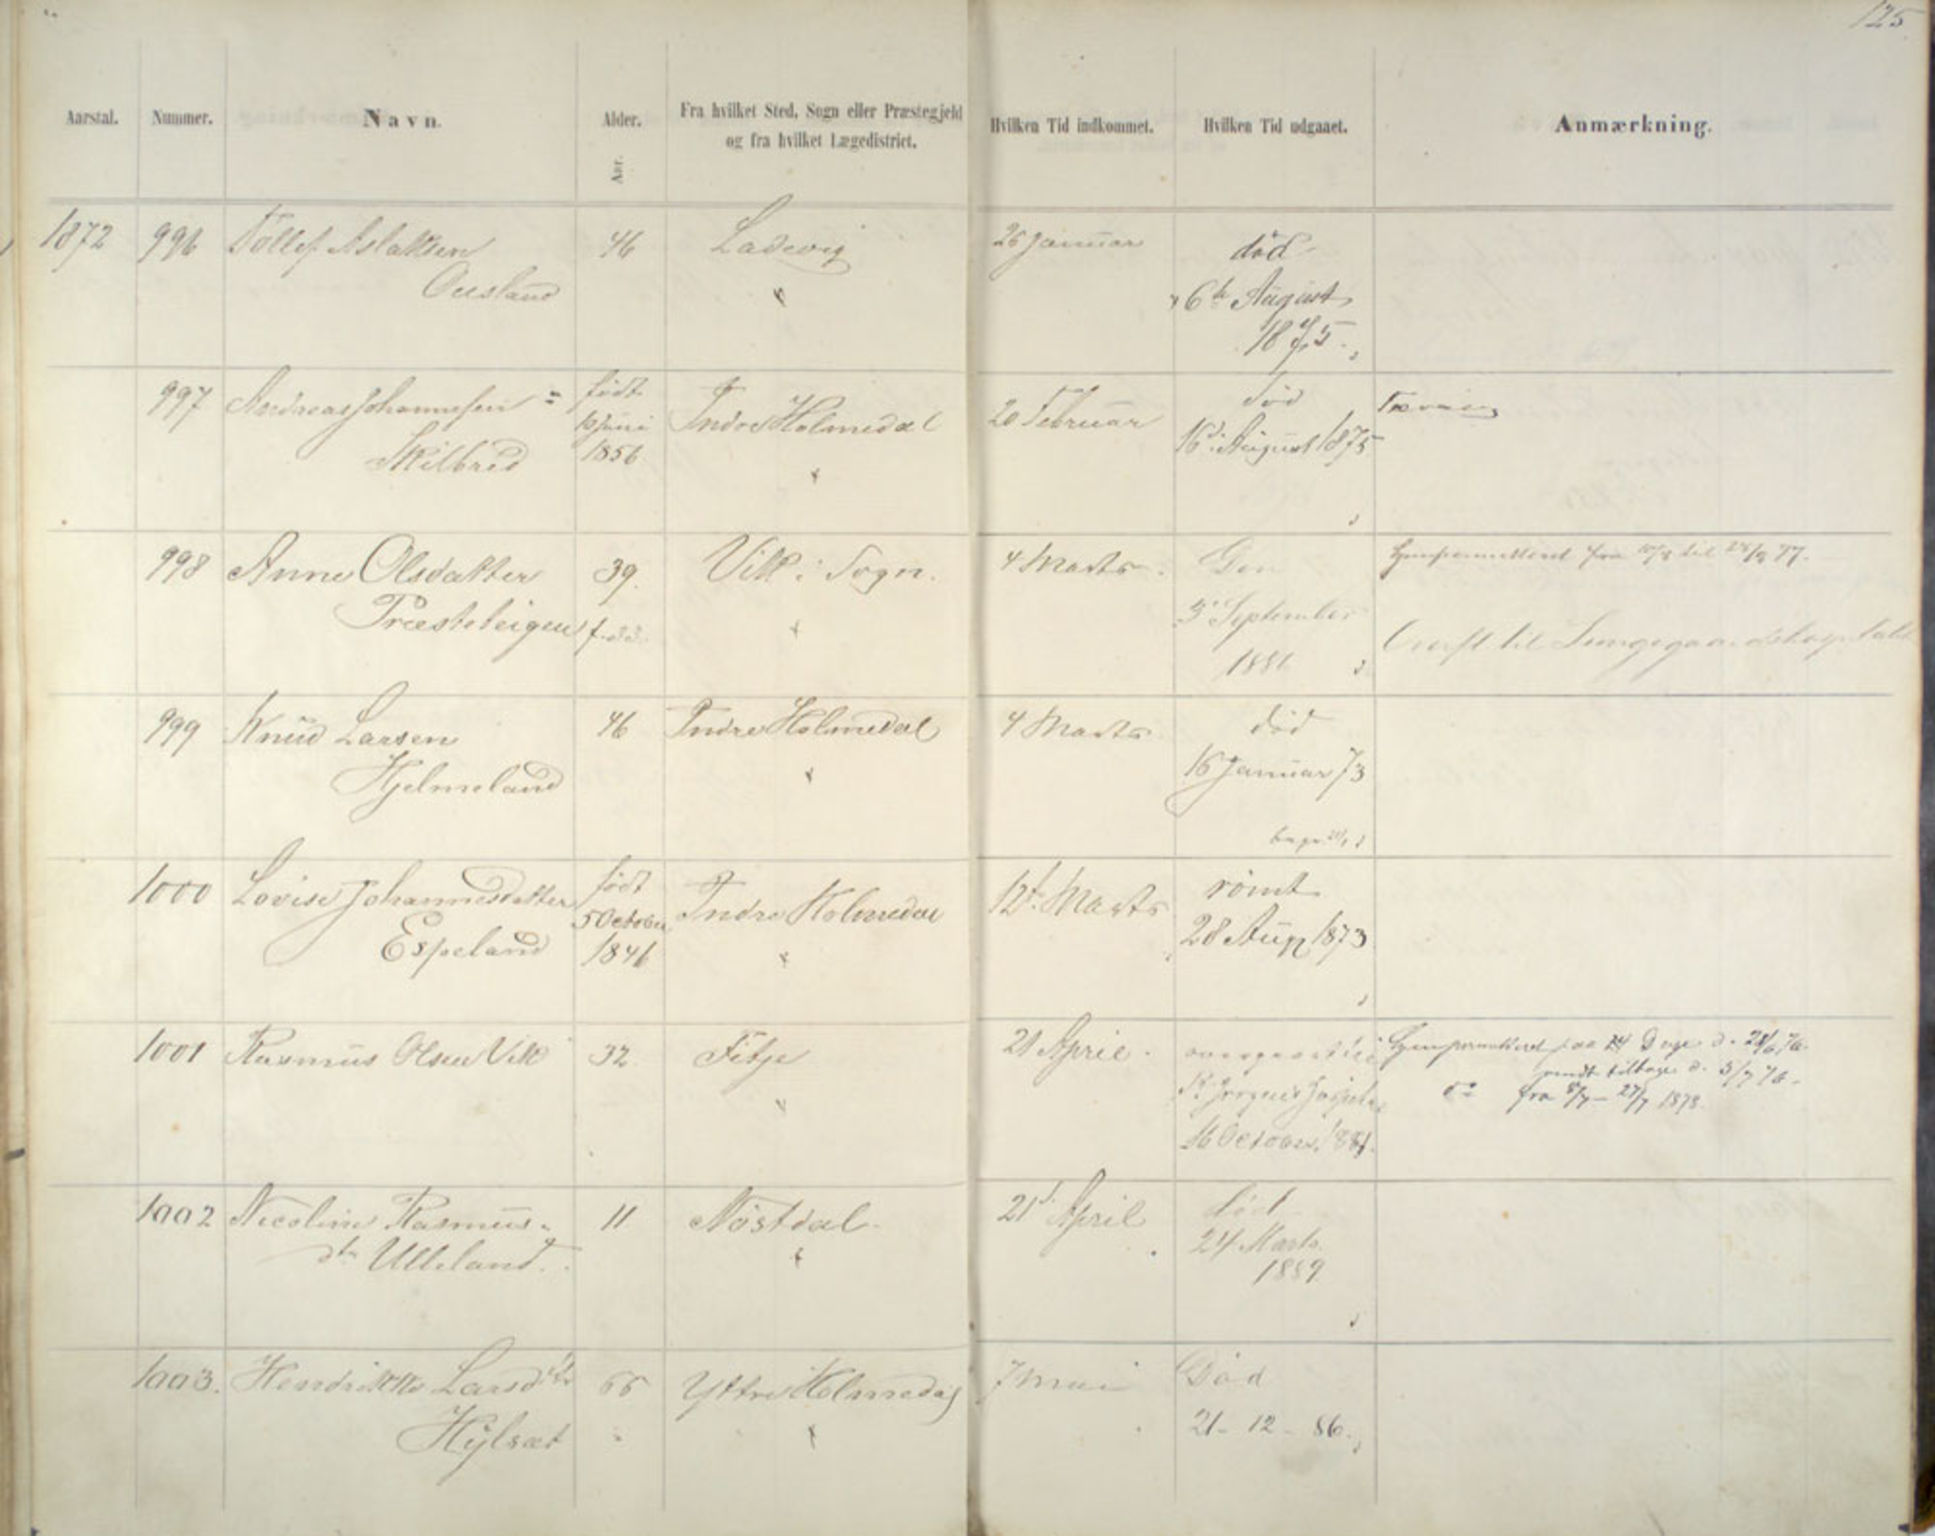 125
Aarstal. Nummer. Navn. Alder. Fra hvilket Sted, Sogn eller Præstegjeld og fra hvilket Lægedistrict. Hvilken Tid indkommet. Hvilken Tid udgaaet. Anmærkning.
Aar.
1872 996 Tollef Aslaksen 46 Ladevig 26 Januar død
Ousland 6te August
1875.
997 Andreas Johannesen = født Indre Holmedal 20 Februar død
Skilbred Juni 16de August 1875
1856
998 Anne Olsdatter 39. Vik i Sogn. 4 Marts. Den Hjempermitteret fra til 77.
Præsteteigen 3 September
1881 til Lungegaardshospitalet
999 Knud Larsen 46 Indre Holmedal 4 Marts død
Hjelmeland 16 Januar 73
1000 Lovise Johannesdatter født Indre Holmedal 12te Marts rømt
Espeland 5 October 28 Aug 1873
1846
1001 Rasmus Olsen Vik 32. Fitje 21 April. Hjempermitteret paa 14 Dage d. 28/6 76.
St. Jørgens Hospital vendt tilbage d. 5/7 76.
16 October 1881. do fra 8/7 - 27/7 1878.
1002 Nicoline Rasmus- 11 Nöstdal. 21de April Död
dtr Ulleland. 24 Marts
1889
1003. Hendrikke Larsdtr 66 Yttre Holmedal 7 Mai Død
Hylsæt 21-12-86.